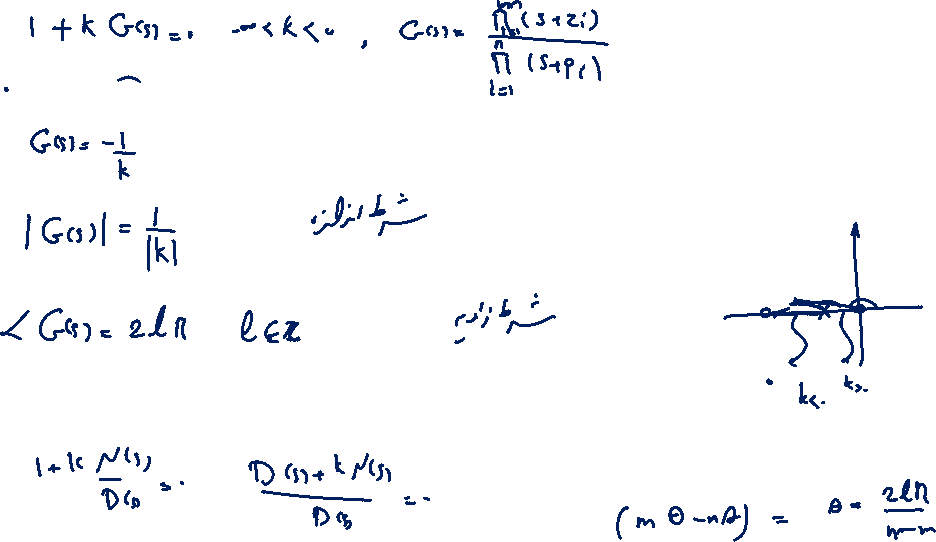 1 + k G(s) = 0   -∞ < k < 0 , G(s) = \frac{\prod_{i=1}^{m} (s+z_i)}{\prod_{i=1}^{n} (s+p_i)}
G(s) = -\frac{1}{k}
|G(s)| = \frac{1}{|k|}   شرط اندازه
∠ G(s) = 2lπ   l ∈ Z   شرط زاویه
k<0   k>0
1 + k \frac{N(s)}{D(s)} = 0   \frac{D(s) + k N(s)}{D(s)} = 0
(mθ - nθ) =   θ = \frac{2lπ}{n-m}